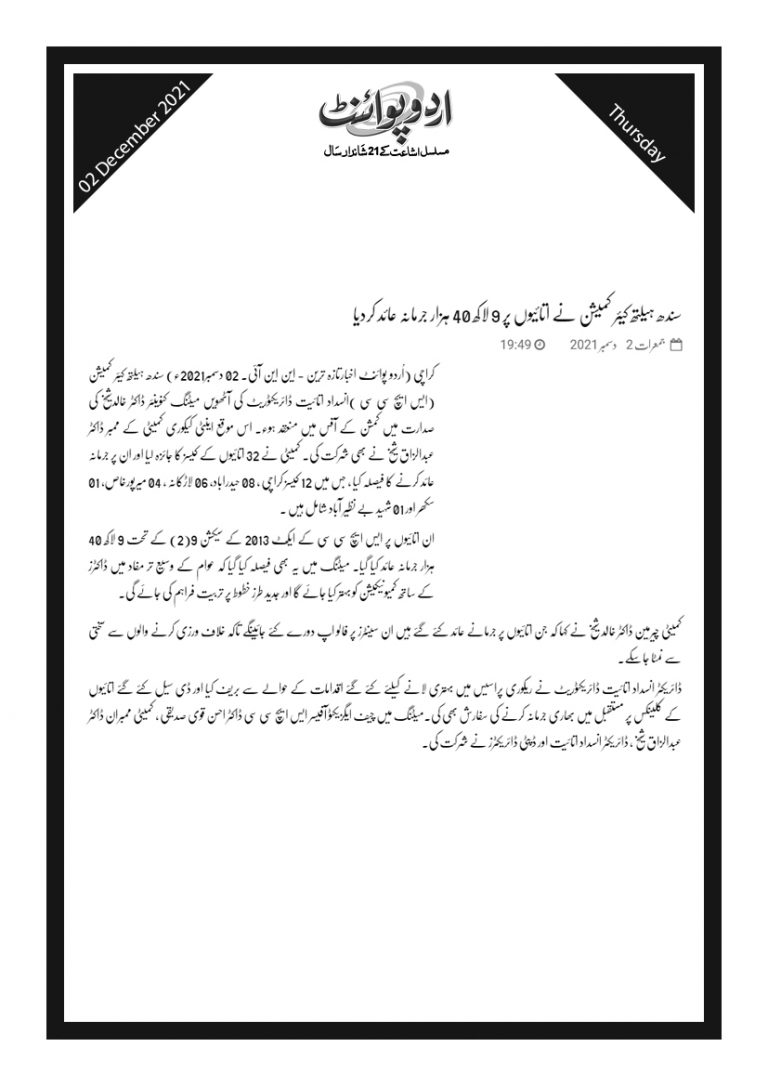 02 December 2021
Thursday
اردوپوائنٹ
مسلسل اشاعت کے 21 شاندار سال
سندھ ہیلتھ کیئر کمیشن نے اتائیوں پر 9 لاکھ 40 ہزار جرمانہ عائد کردیا
جمعرات 2 دسمبر 2021 19:49
کراچی (اُردو پوائنٹ اخبارتازہ ترین - اِین این آئی۔ 02 دسمبر2021ء) سندھ ہیلتھ کیئر کمیشن
(ایس ایچ سی سی )انسداد اتائیت ڈائریکٹوریٹ کی آٹھویں میٹنگ کنوینئر ڈاکٹر خالدشیخ کی
صدارت میں کمشن کے آفس میں منعقد ہوء۔ اس موقع اینٹی کیکوری کمیٹی کے ممبر ڈاکٹر
عبدالزاق شیخ نے بھی شرکت کی۔ کمیٹی نے 32 اتائیوں کے کیسز کا جائزہ لیا اور ان پر جرمانہ
عائد کرنے کا فیصلہ کیا، جس میں 12 کیسز کراچی ، 08 حیدراباد، 06 لاڑکانہ ، 04 میرپورخاص، 01
سکھر اور 01 شہید بے نظیر آباد شامل ہیں ۔
ان اتائیوں پر ایس ایچ سی سی کے ایکٹ 2013 کے سیکشن 9(2) کے تحت 9 لاکھ 40
ہزار جرمانہ عائد کیا گیا۔ میٹنگ میں یہ بھی فیصلہ کیا گیا کہ عوام کے وسیع تر مفاد میں ڈاکٹرز
کے ساتھ کمیونیکیشن کو بہتر کیا جائے گا اور جدید طرز خطوط پر تربیت فراہم کی جائے گی۔
کمیٹی چیرمین ڈاکٹر خالد شیخ نے کہا کہ جن اتائیوں پر جرمانے عائد کئے گئے ہیں ان سینٹرز پر فالو اپ دورے کئے جائینگے تاکہ خلاف ورزی کرنے والوں سے سختی
سے نمٹا جاسکے۔
ڈائریکٹر انسداد اتائیت ڈائریکٹوریٹ نے ریکوری پراسیس میں بہتری لانے کیلئے کئے گئے اقدامات کے حوالے سے بریف کیا اور ڈی سیل کئے گئے اتائیوں
کے کلینکس پر مستقبل میں بھاری جرمانہ کرنے کی سفارش بھی کی۔میٹنگ میں چیف ایگزیکٹو آفیسر ایس ایچ سی سی ڈاکٹر احسن قوی صدیقی، کمیٹی ممبران ڈاکٹر
عبدالزاق شیخ ، ڈائریکٹر انسداد اتائیت اور ڈپٹی ڈائریکٹرز نے شرکت کی۔